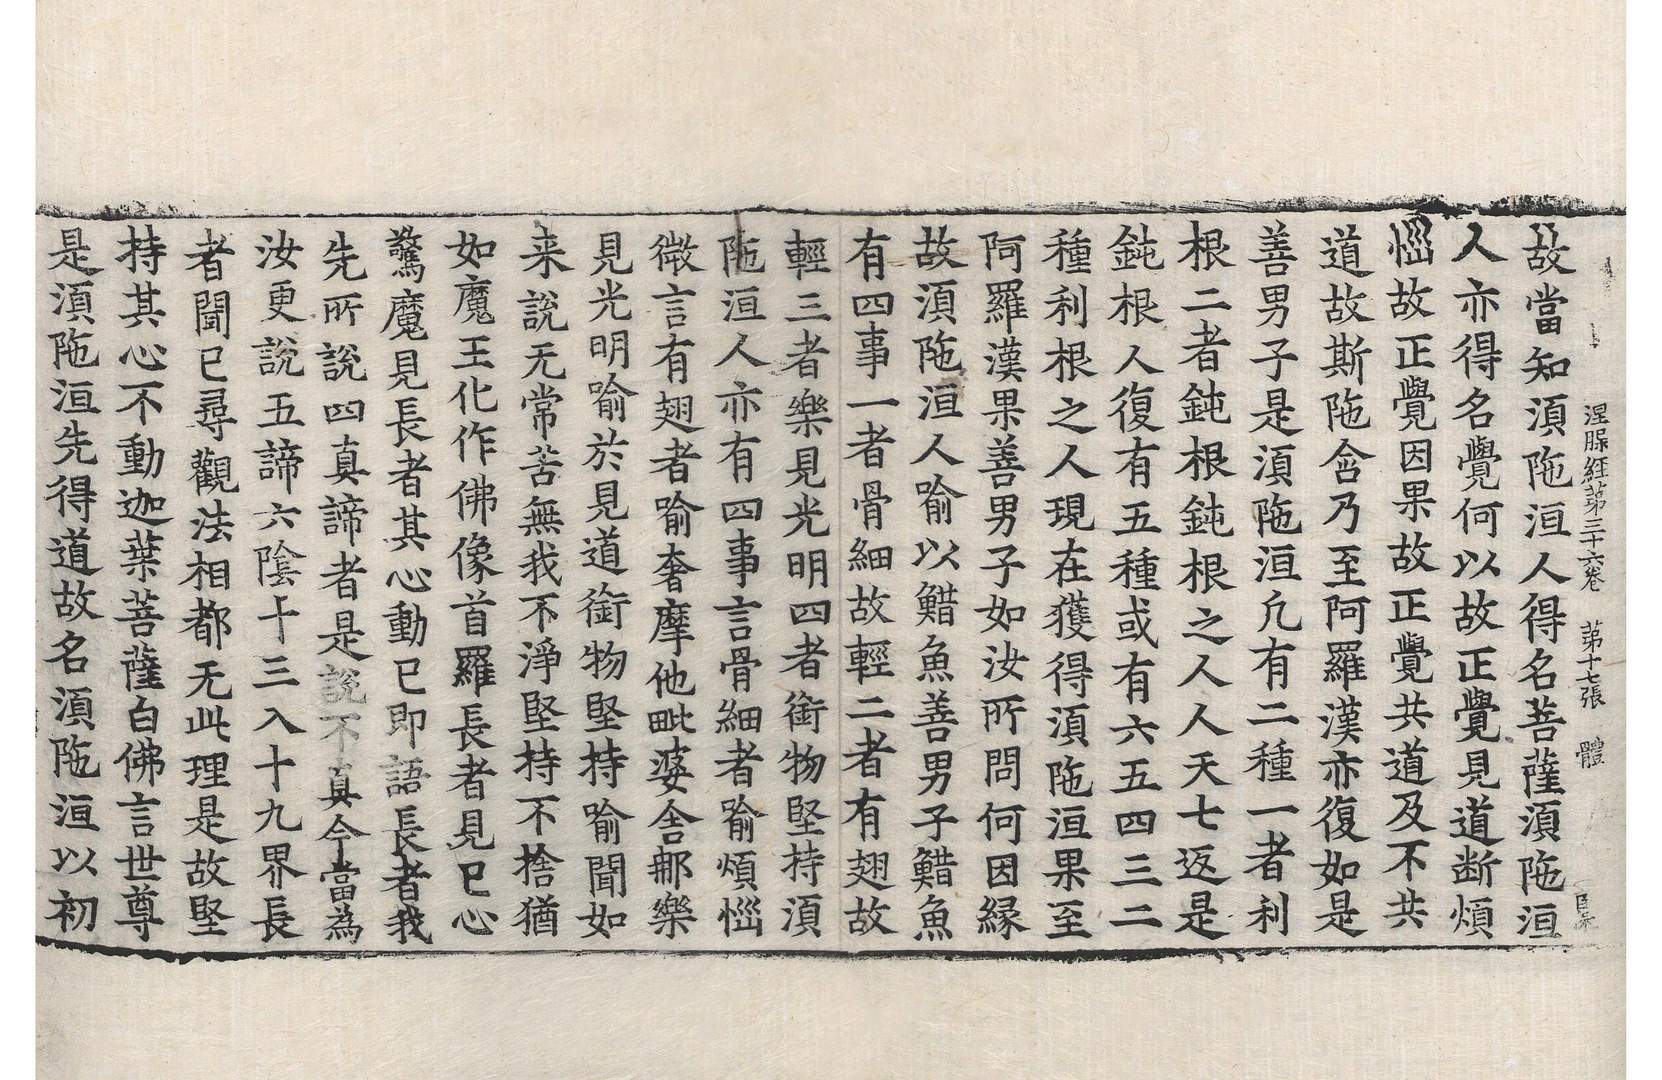 涅脲経苐三十六卷 苐十七張 體
故當知湏陁洹人得名菩薩湏陁洹
人亦得名覺何以故正覺見道断煩
惱故正覺因果故正覺共道及不共
道故斯陁含乃至阿羅漢亦復如是
善男子是湏陁洹凢有二種一者利
根二者鈍根鈍根之人人天七返是
鈍根人復有五種或有六五四三二
種利根之人現在獲得湏陁洹果至
阿羅漢果善男子如汝所問何因縁
故湏陁洹人喻以䱜魚善男子䱜魚
有四事一者骨細故輕二者有翅故
輕三者樂見光明四者銜物堅持湏
陁洹人亦有四事言骨細者喻煩惱
微言有翅者喻奢摩他毗婆舍那樂
見光明喻於見道銜物堅持喻聞如
来說无常苦無我不淨堅持不捨猶
如魔王化作佛像首羅長者見已心
驚魔見長者其心動已即語長者我
先所說四真諦者是說不真今當為
汝更說五諦六陰十三入十九界長
者聞已尋觀法相都无此理是故堅
持其心不動迦葉菩薩白佛言世尊
是湏陁洹先得道故名湏陁洹以初